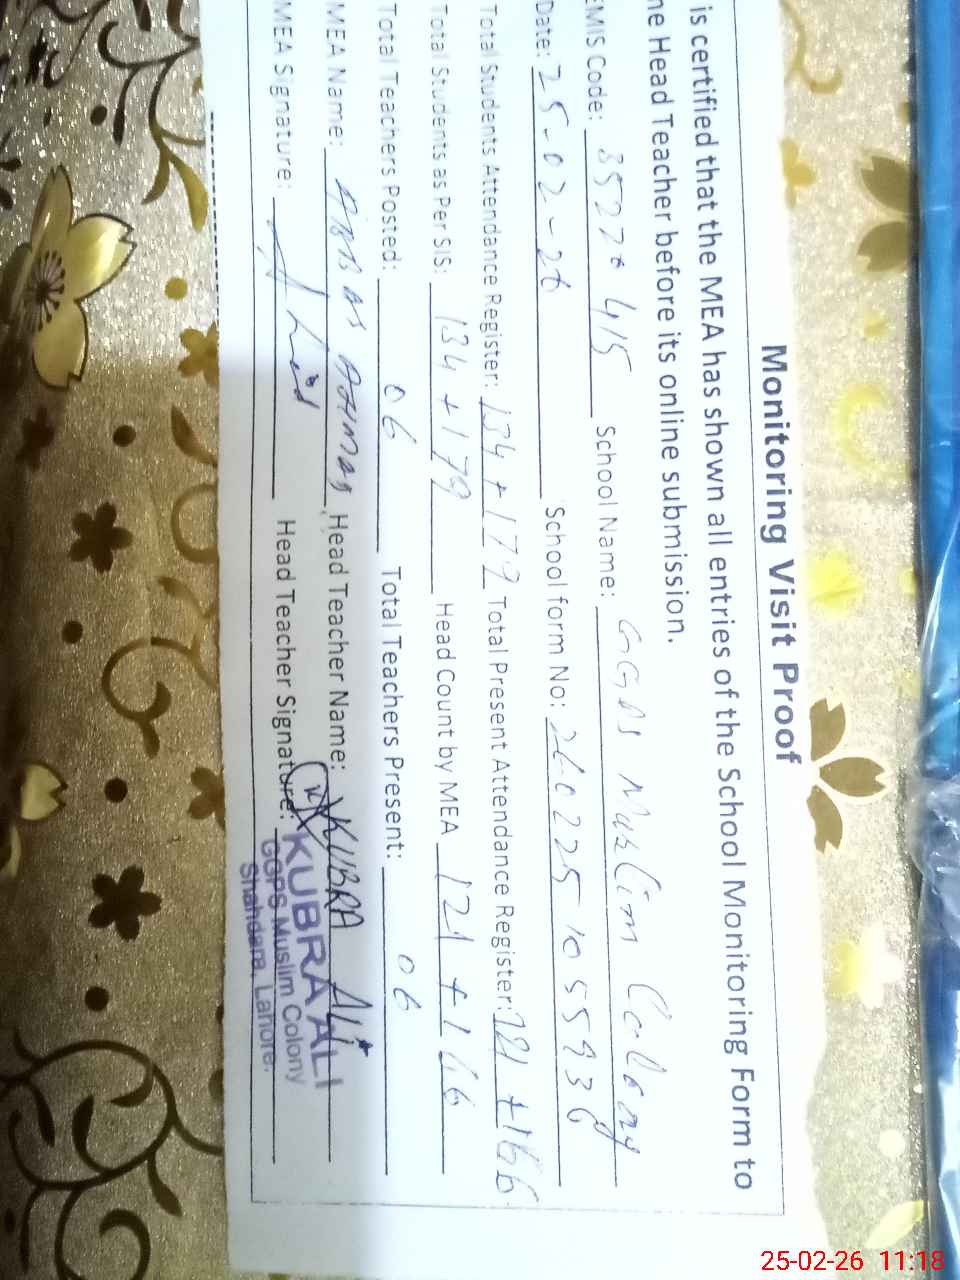 Monitoring Visit Proof
is certified that the MEA has shown all entries of the School Monitoring Form to
he Head Teacher before its online submission.
EMIS Code: 35220415 School Name: GGPS Muslim Colony
Date: 25-02-26 School form No:
Total Students Attendance Register: 134 + 179 Total Present Attendance Register: 121 + 166
Total Students as Per SIS: 134 + 179 Head Count by MEA 121 + 166
Total Teachers Posted: 06 Total Teachers Present: 06
MEA Name: Head Teacher Name: KUBRA ALI
MEA Signature: Head Teacher Signature:
KUBRA ALI
GGPS Muslim Colony
Shahdara, Lahore.
25-02-26 11:18